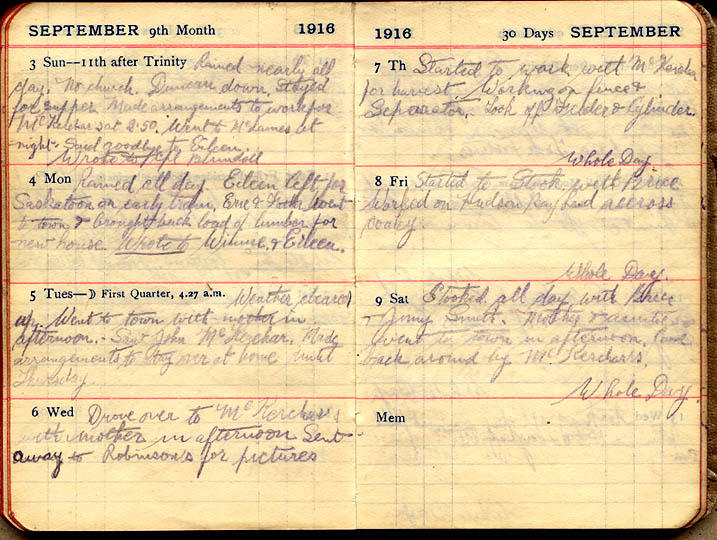 SEPTEMBER 9th Month 1916
3 Sun--11th after Trinity Rained nearly all
day. No church. Duncan down, stayed
for supper. Made arrangements to work for
McKerchar at 2.50. Went to McLames at
night. Said goodbye to Eileen.
Wrote to Blundell
4 Mon Rained all day. Eileen left for
Saskatoon on early train, Erie & went
to town & brought back load of lumber for
new house. Wrote to Winnie & Eileen.
5 Tues—☽ First Quarter, 4.27 a.m. Weather cleared
up. Went to town with mother in
afternoon. Saw John McKerchar. Made
arrangements to stay over at home until
Thursday
6 Wed Drove over to McKerchar's
with mother in afternoon Sent
away to Robinson's for pictures
1916 30 Days SEPTEMBER
7 Th Started to work with McKerchar
for harvest. Working on fence &
Seperator. Took off Feeder & Cylinder.
Whole Day
8 Fri Started to Stook with Bruce
Worked on Hudson Bay land accross
Whole Day.
9 Sat Stooked all day with Bruce
& Jimmy Smith. Mother & auntie
went to town in afternoon, Came
back around by McKerchar's.
Whole Day
Mem